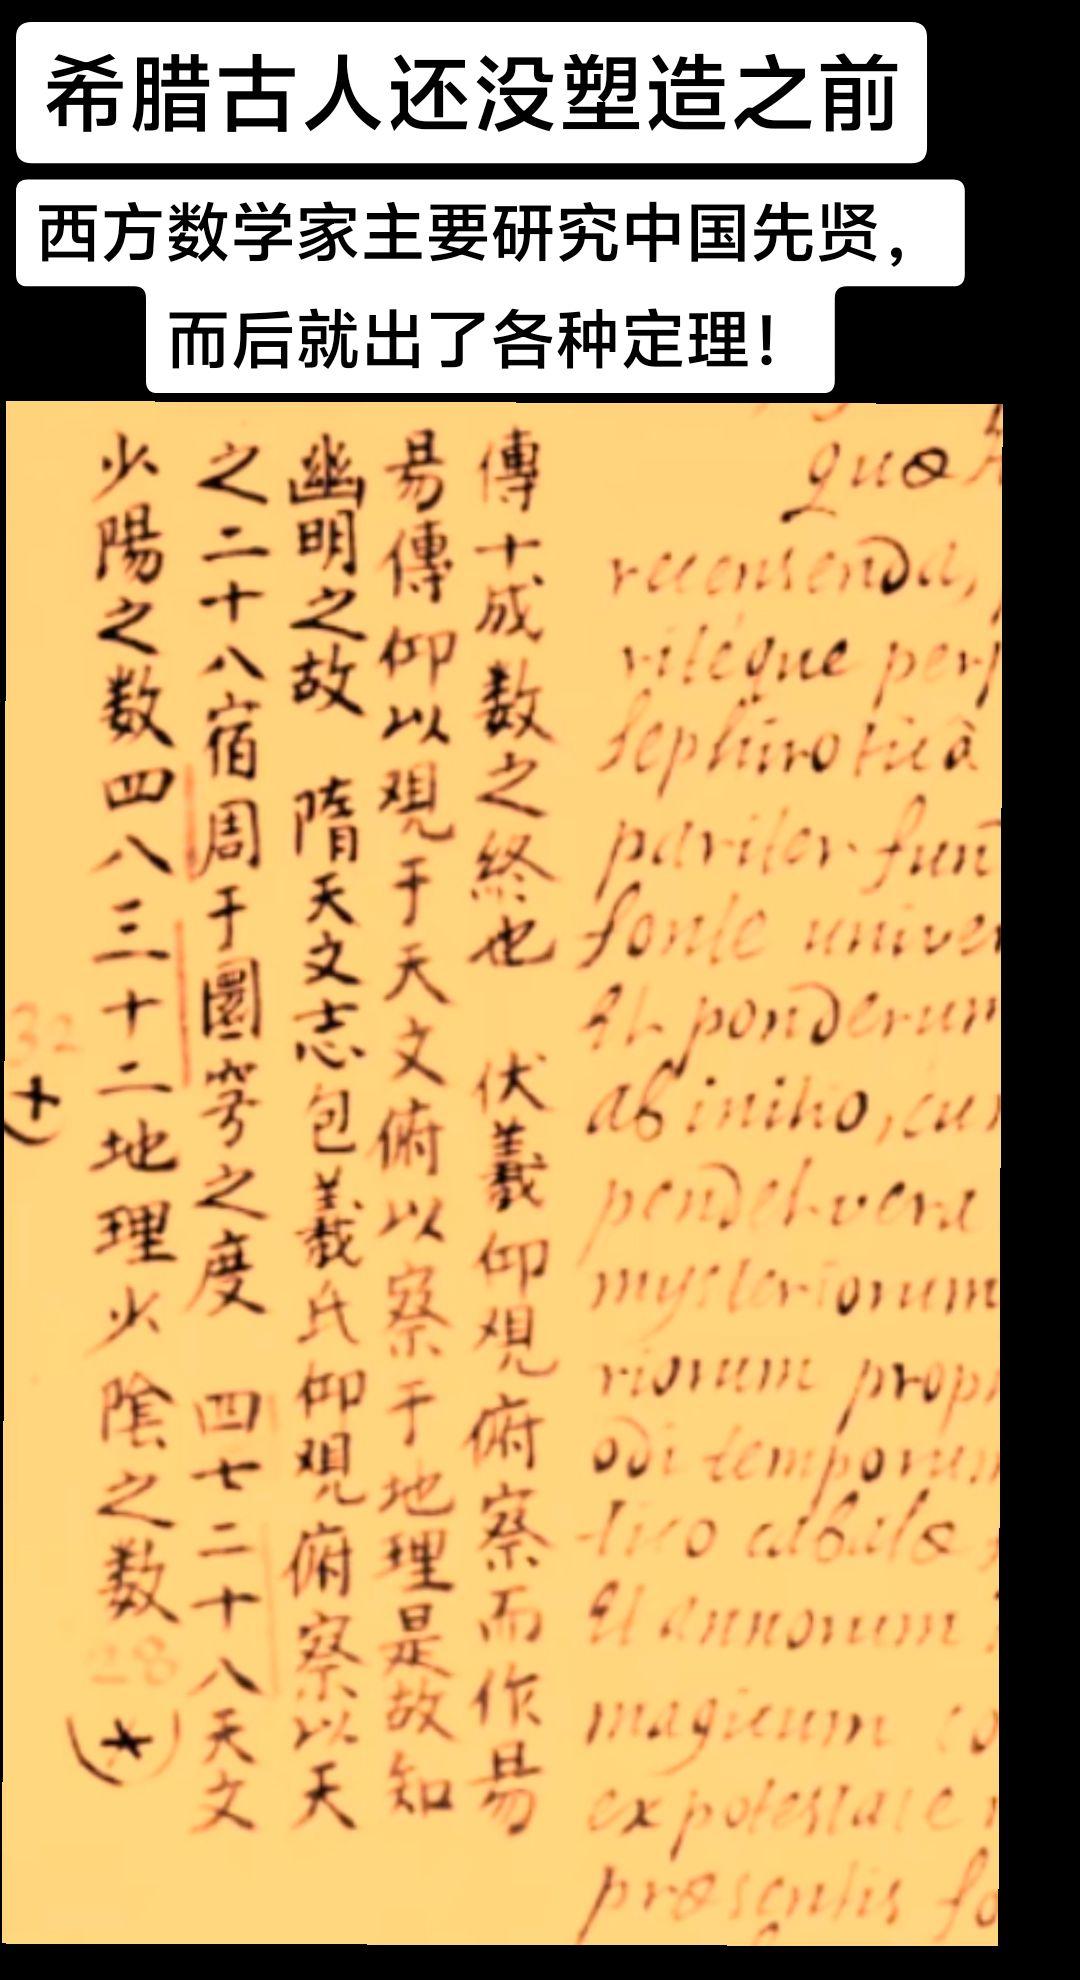 希腊古人还没塑造之前
西方数学家主要研究中国先贤，
而后就出了各种定理！
傳十成数之終也 伏羲仰观俯察而作易
易傳仰以观于天文俯以察于地理是故知
幽明之故 隋天文志包羲氏仰观俯察以天
之二十八宿周于圜穹之度 四七二十八天文
少陽之数四八三十二地理少陰之数
32
28
quæ
recensenda,
riteque
sephirotica
pariter
fonte univer
et ponderum
ab initio, cu
pendet vera
mysteriorum
riorum prop
odi temporum
tico cabalæ
et annorum
magicum co
ex potestate
præsentis fo